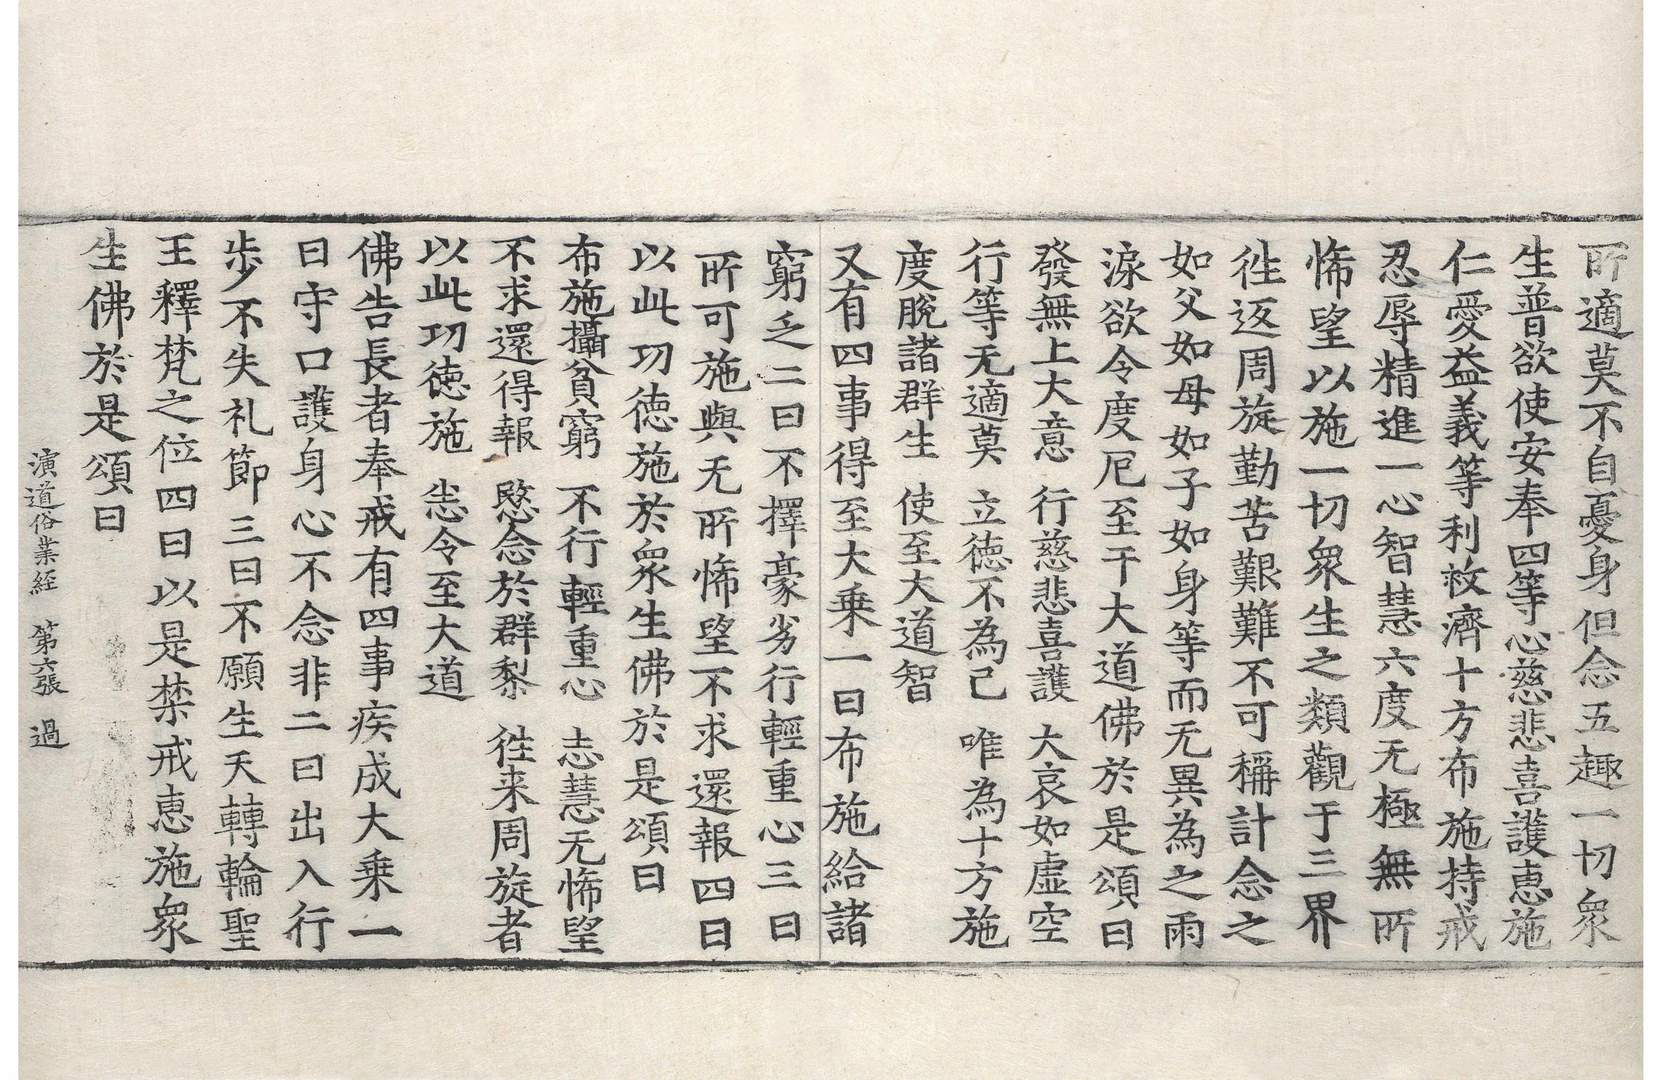 所適莫不自憂身但念五趣一切衆
生普欲使安奉四等心慈悲喜護恵施
仁愛益義等利救濟十方布施持戒
忍辱精進一心智慧六度无極無所
悕望以施一切衆生之類觀于三界
徃返周旋勤苦艱難不可稱計念之
如父如母如子如身等而无異為之雨
淚欲令度厄至于大道佛於是頌曰
發無上大意 行慈悲喜護 大哀如虛空
行等无適莫 立徳不為己 唯為十方施
度脫諸群生 使至大道智
又有四事得至大乗一曰布施給諸
窮乏二曰不擇豪劣行輕重心三曰
所可施與无所悕望不求還報四曰
以此功徳施於衆生佛於是頌曰
布施攝貧窮 不行輕重心 志慧无悕望
不求還得報 愍念於群黎 徃来周旋者
以此功徳施 恙令至大道
佛告長者奉戒有四事疾成大乗一
曰守口護身心不念非二曰出入行
步不失礼節三曰不願生天轉輪聖
王釋梵之位四曰以是禁戒恵施衆
生佛於是頌曰
演道俗業経 第六張 過